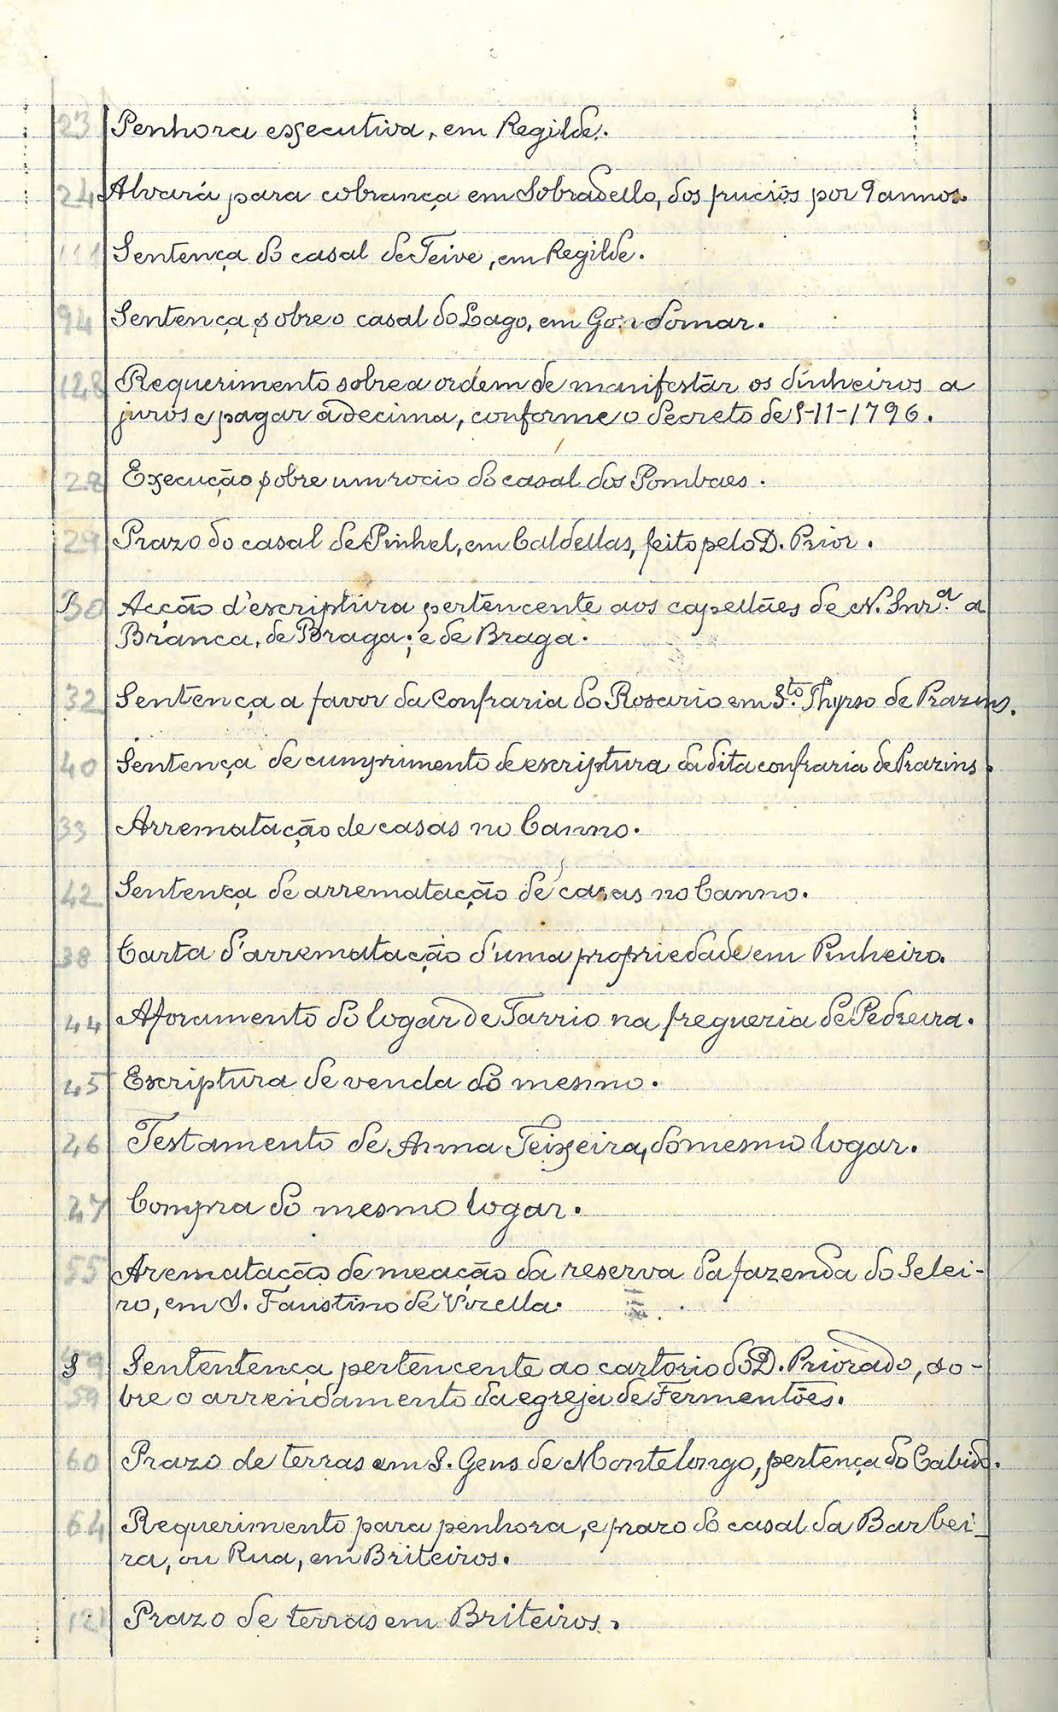 23 Penhora executiva, em Regilde.
24 Alvará para cobrança em Sobradello, dos frucios por 9 annos.
111 Sentença do casal de Teive, em Regilde.
94 Sentença sobre o casal do Lago, em Gondomar.
128 Requerimento sobre a ordem de manifestar os dinheiros a
juros e pagar a decima, conforme o decreto de 9-11-1796.
28 Execução sobre um rocio do casal dos Pombaes.
29 Prazo do casal de Pinhel, em Caldellas, feito pelo D. Prior.
30 Acção d'escriptura pertencente aos capellães de N. Snr.ª a
Branca, de Braga; e de Braga.
32 Sentença a favor da Confraria do Rosario em S.to Thyrso de Prazins.
40 Sentença de cumprimento de escriptura da dita confraria de Prazins.
33 Arrematação de casas no Canno.
42 Sentença de arrematação de casas no Canno.
38 Carta d'arrematação d'uma propriedade em Pinheiro.
44 Aforamento do logar de Tarrio na fregueria de Pedreira.
45 Escriptura de venda do mesmo.
46 Testamento de Anna Teixeira, do mesmo logar.
47 Compra do mesmo logar.
55 Arematação de meação da reserva da fazenda do Selei-
ro, em S. Faustino de Vizella.
S Sententença pertencente ao cartorio do D. Priorado, so-
59 bre o arrendamento da egreja de Fermentões.
60 Prazo de terras em S. Gens de Montelongo, pertença do Cabido.
64 Requerimento para penhora, e prazo do casal da Barbei-
ra, ou Rua, em Briteiros.
121 Prazo de terras em Briteiros.